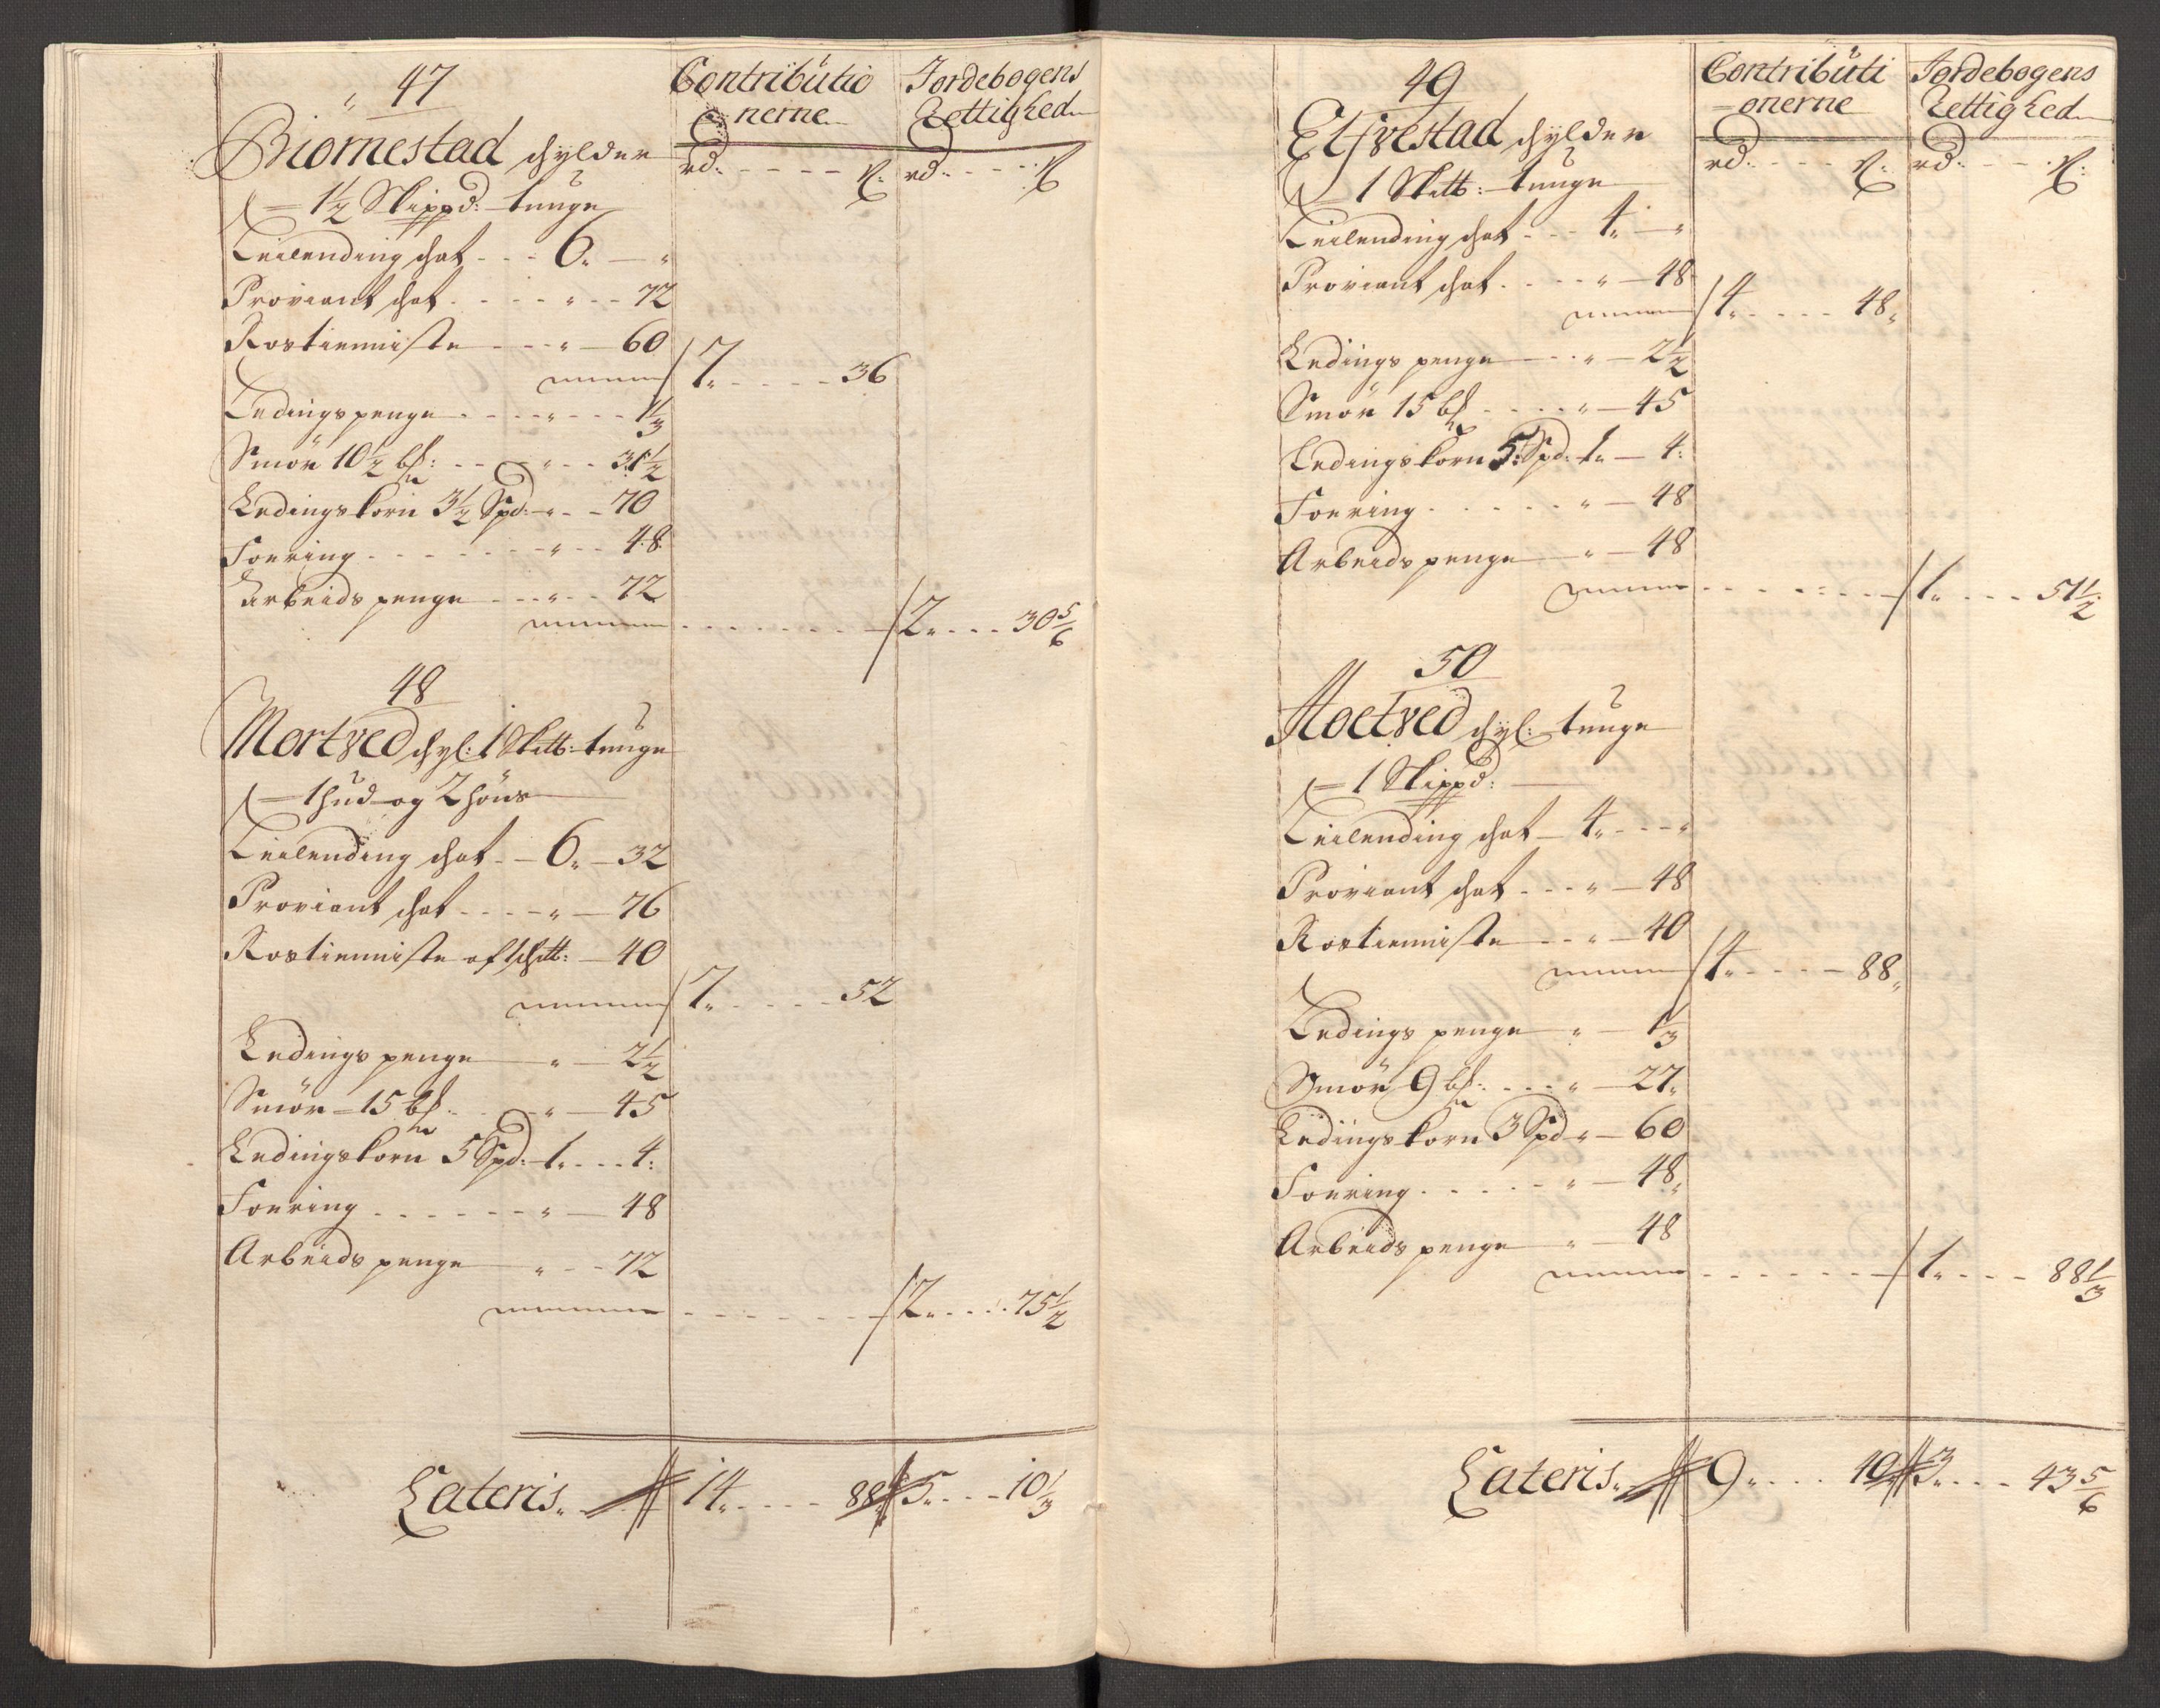 47
Contributio
nerne
Jordebogens
Rettighed
Biørnestad schylder
rd: ß: rd: ß
1½ Skippd: tunge
Leilending schat 6 „ „
Proviant schat „ 72
Rostienniste „ 60
7 „ 36
Ledingspenge „ 1⅓
Smör 10½ bs: „ 31½
Ledingskorn 3½ Spd: „ 70
Foering „ 48
Arbeids penge „ 72
2 „ 30 5/6
48
Mortved schyl: 1 Sktt: tunge
1 hud og 2 höns
Leilending schat 6 „ 32
Proviant schat „ 76
Rostienniste af 1 schtt: 40
7 „ 52
Ledings penge „ 2½
Smör 15 bs: „ 45
Ledingskorn 5 Spd: 1 „ 4:
Foering „ 48
Arbeids penge „ 72
2 „ 75½
Lateris „ 14 „ 88 5 „ 10⅓
49
Contributi
onerne
Jordebogens
Rettighed
schylder
rd: ß: rd: ß:
1 Sktt: tunge
Leilending schat 4 „ „
Proviant schat „ 48
4 „ 48 „
Ledings penge „ 2½
Smör 15 bs „ 45
Ledingskorn 5: Spd: 1 „ 4:
Foering „ 48
Arbeids penge „ 48
1 „ 51½
50
schyl: tunge
1 Skippd:
Leilending schat 4 „ „
Proviant schat „ 48
Rostienniste „ 40
4 „ 88 „
Ledings penge „ 1⅓
Smör 9 bs: „ 27 „
Ledingskorn 3 Spd „ 60
Foering „ 48 „
Arbeids penge „ 48
1 „ 88⅓
Lateris „ 9 „ 40 3 „ 43 5/6